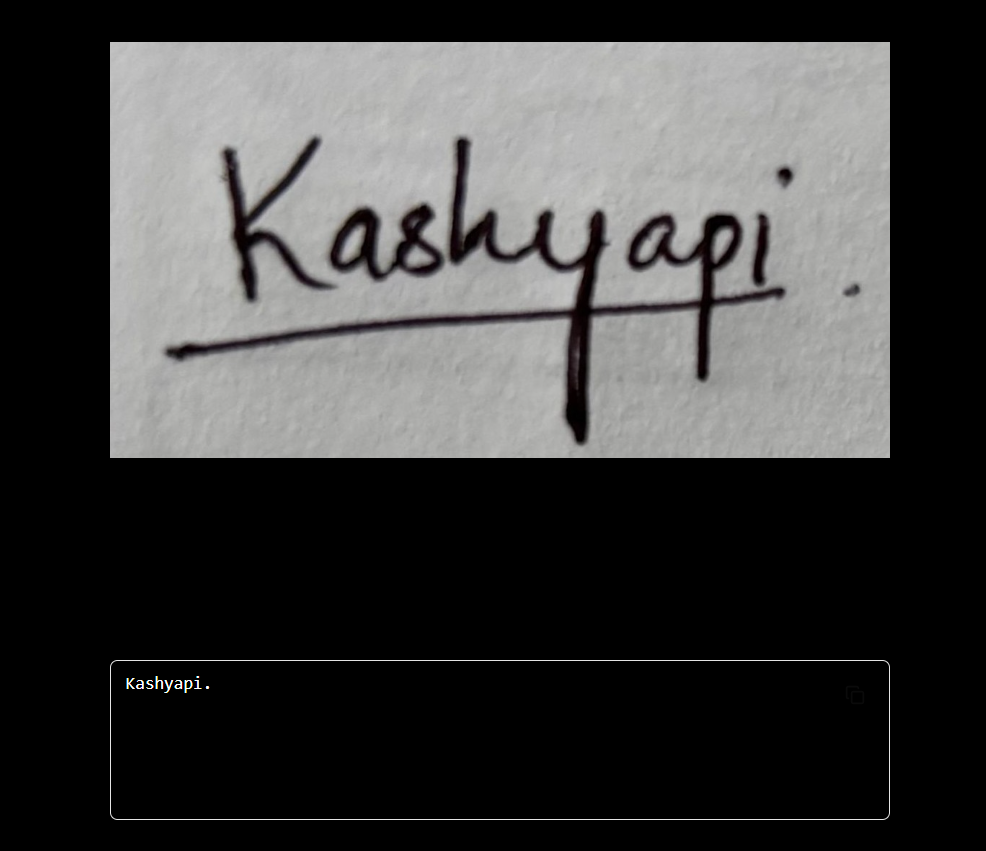 Kashyapi.
Kashyapi.